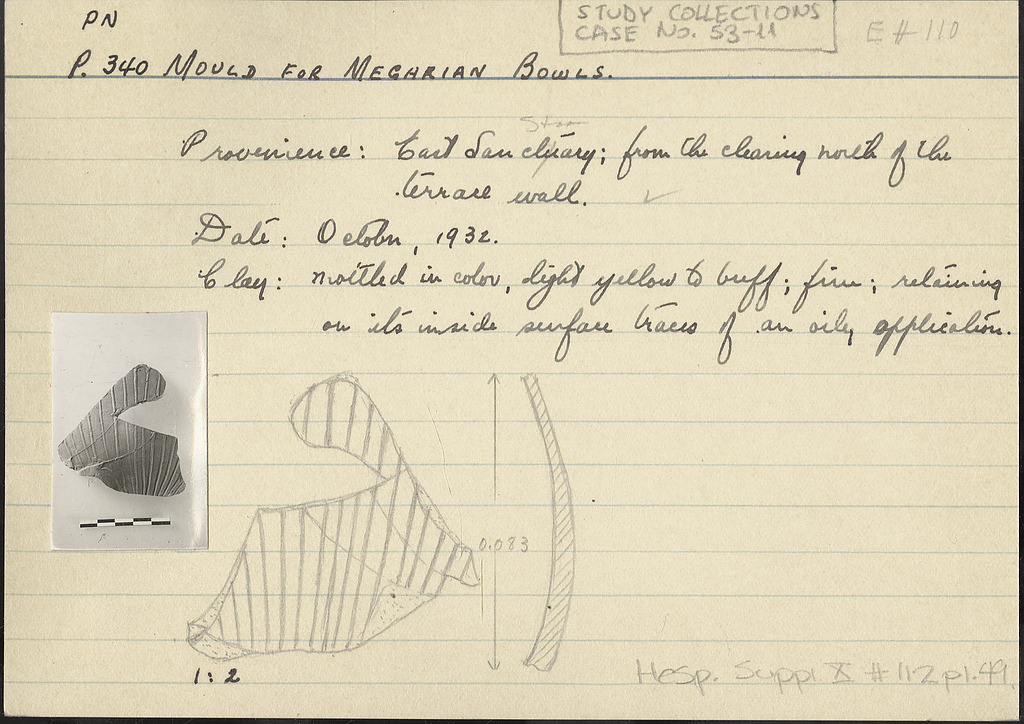 PN
STUDY COLLECTIONS
CASE No. 53-11
E # 110
P. 340 MOULD FOR MEGARIAN BOWLS.
Stoa
Provenience: East Sanctuary; from the clearing north of the
terrace wall.
Date: October, 1932.
Clay: mottled in color, light yellow to buff; fine; retaining
on its inside surface traces of an oily application.
0.083
1:2
Hesp. Suppl X # 112 pl. 49.